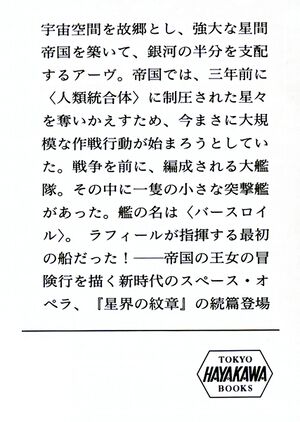 宇宙空間を故郷とし、強大な星間
帝国を築いて、銀河の半分を支配
するアーヴ。帝国では、三年前に
〈人類統合体〉に制圧された星々
を奪いかえすため、今まさに大規
模な作戦行動が始まろうとしてい
た。戦争を前に、編成される大艦
隊。その中に一隻の小さな突撃艦
があった。艦の名は〈バースロイ
ル〉。 ラフィールが指揮する最初
の船だった！──帝国の王女の冒
険行を描く新時代のスペース・オ
ペラ、『星界の紋章』の続篇登場
TOKYO
HAYAKAWA
BOOKS